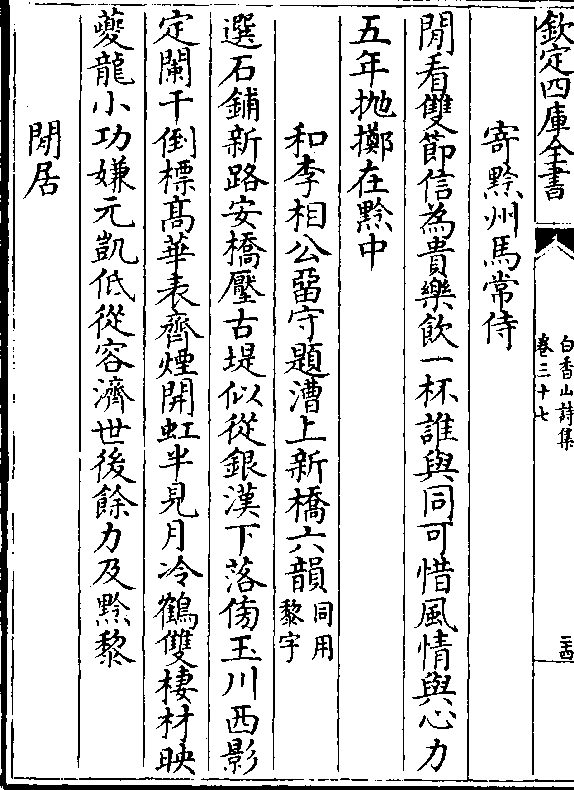 欽定四庫全書
白香山詩集
卷三十七
二十四
寄黔州馬常侍
閒看雙節信為貴樂飲一杯誰與同可惜風情與心力
五年拋擲在黔中
和李相公留守題漕上新橋六韻同用
黎字
選石鋪新路安橋壓古堤似從銀漢下落傍玉川西影
定闌干倒標高華表齊煙開虹半見月冷鶴雙棲材映
夔龍小功嫌元凱低從容濟世後餘力及黔黎
閒居